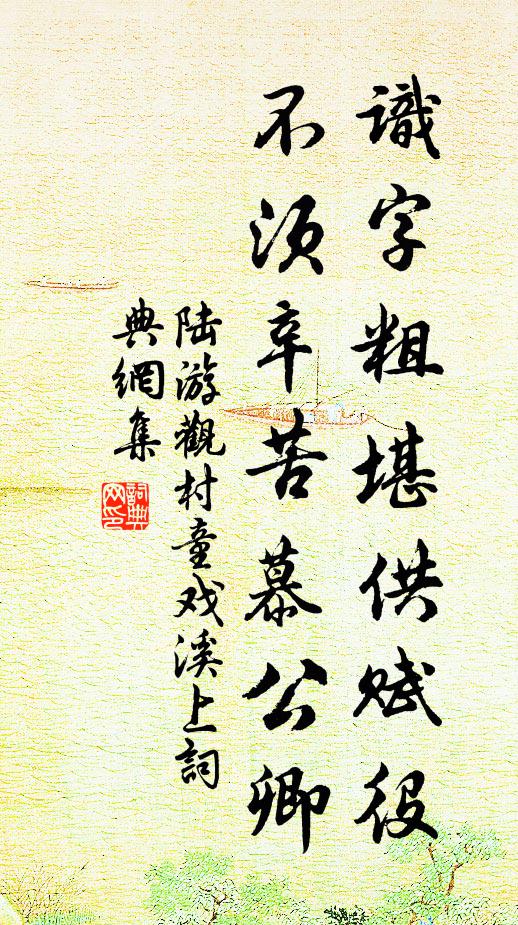 識字粗堪供赋役
不须辛苦慕公卿
陆游觀村童戏溪上詞
典網集
詞典
网印